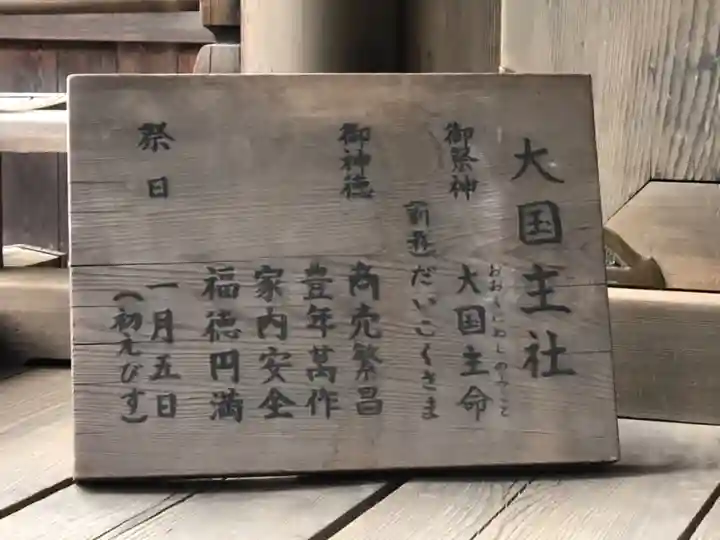 大国主社
御祭神
おおくにぬしのみこと
大国主命
だいこくさま
御神徳
商売繁昌
豊年萬作
家内安全
福徳円満
祭日
一月五日
(初えびす)